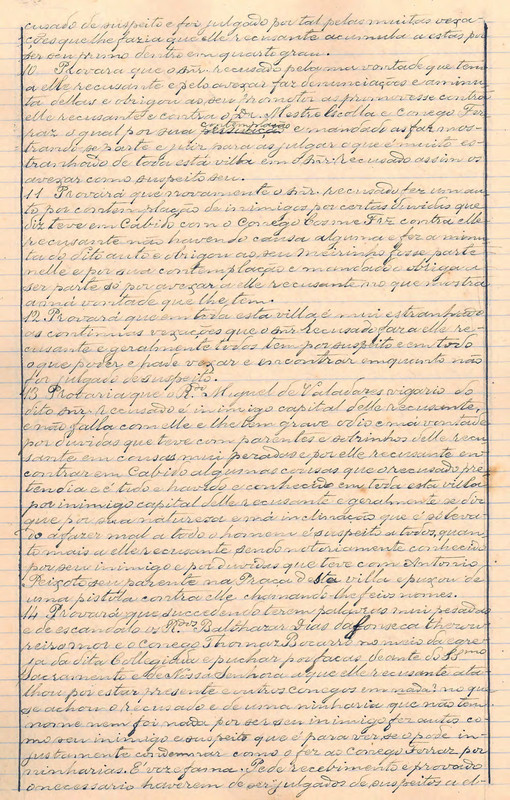 cusado de suspeito e for julgado por tal pelas muitas vexa-
ções que lhe fazia que elle recusante acumula a estas por
ser seu primo dentro em quarto grau.
10 Provara que o snr. recusado pela ma vontade que tem
a elle recusante e pelo avexar faz denunciações e a minu
ta dellas e obrigou ao seu promotor as promovesse contra
elle recusante e contra o Dr. Mestre Escolla e Conego Fer
raz o qual por sua contemplação e mandado as faz mos-
trando se parte e para as julgar o que é muito es-
tranhado de toda está villa em o snr. recusado assim os
avexar como suspeito seu.
11 Provará que novamente o snr. recusado fez um au-
to por contemplação de inimigos por certas duvidas que
diz teve em Cabido com o Conego Cosme Frz contra elle
recusante não havendo causa alguma e fez a minu
ta do dito auto e obrigou ao seu Meirinho fosse parte
nelle e por sua contemplação e mandado o obriga a
ser parte só por avexar a elle recusante no que mostra
a má vontade que lhe tem.
12 Provará que em toda esta villa é mui estranhado
as continuas vexações que o snr. Recusado faz a elle re-
cusante e geralmente todos tem por suspeito e em todo
o que poder e pode vexar e encontrar emquanto não
for julgado de suspeito.
13 Probaria que o R. Miguel de Valadares vigario do
dito snr. recusado é inimigo capital delle recusente,
e não falla com elle e lhe tem grave odio e má vontade
por duvidas que teve com parentes e sobrinhos delle recu
sante em cousas mui pesadas e por elle recusante en
contrar em Cabido algumas cousas que o recusado pre
tendia e é tudo e havido e conhecido em toda esta villa
por inimigo capital delle recusante e geralmente se diz
que por sua natureza e má inclinação que é só leva
do a fazer mal a todo o homem é suspeito a todos, quan
to mais a elle recusante sendo notoriamente conhecido
por seu inimigo e por duvidas que teve com Antonio
Peixoto seu parente na Praça desta villa e puxou de
uma pistola contra elle chamando lhe feios nomes.
14 Provará que succedendo terem palavras mui pesadas
e de escandalo os R. Balthazar Dias da Fonseca thezou
reiro mor e o Conego Thomaz Bocarro no meio da egre-
ja da dita Collegiada e puchar por facas deante do SSmo
Sacramento e de Nossa Senhora a que elle recusante ata
lhou por estar presente e outros conegos em nada no que
se achou o recusado e de uma ninharia que não tem
nome nem foi nada por ser seu inimigo fez autos co-
mo seu inimigo e suspeito que é para ver se o pode in-
justamente condemnar como o fez ao Conego Ferraz por
ninharias. É voz e fama. Pede recebimento e provado
o necessario haverem de ser julgados de suspeitos a el-